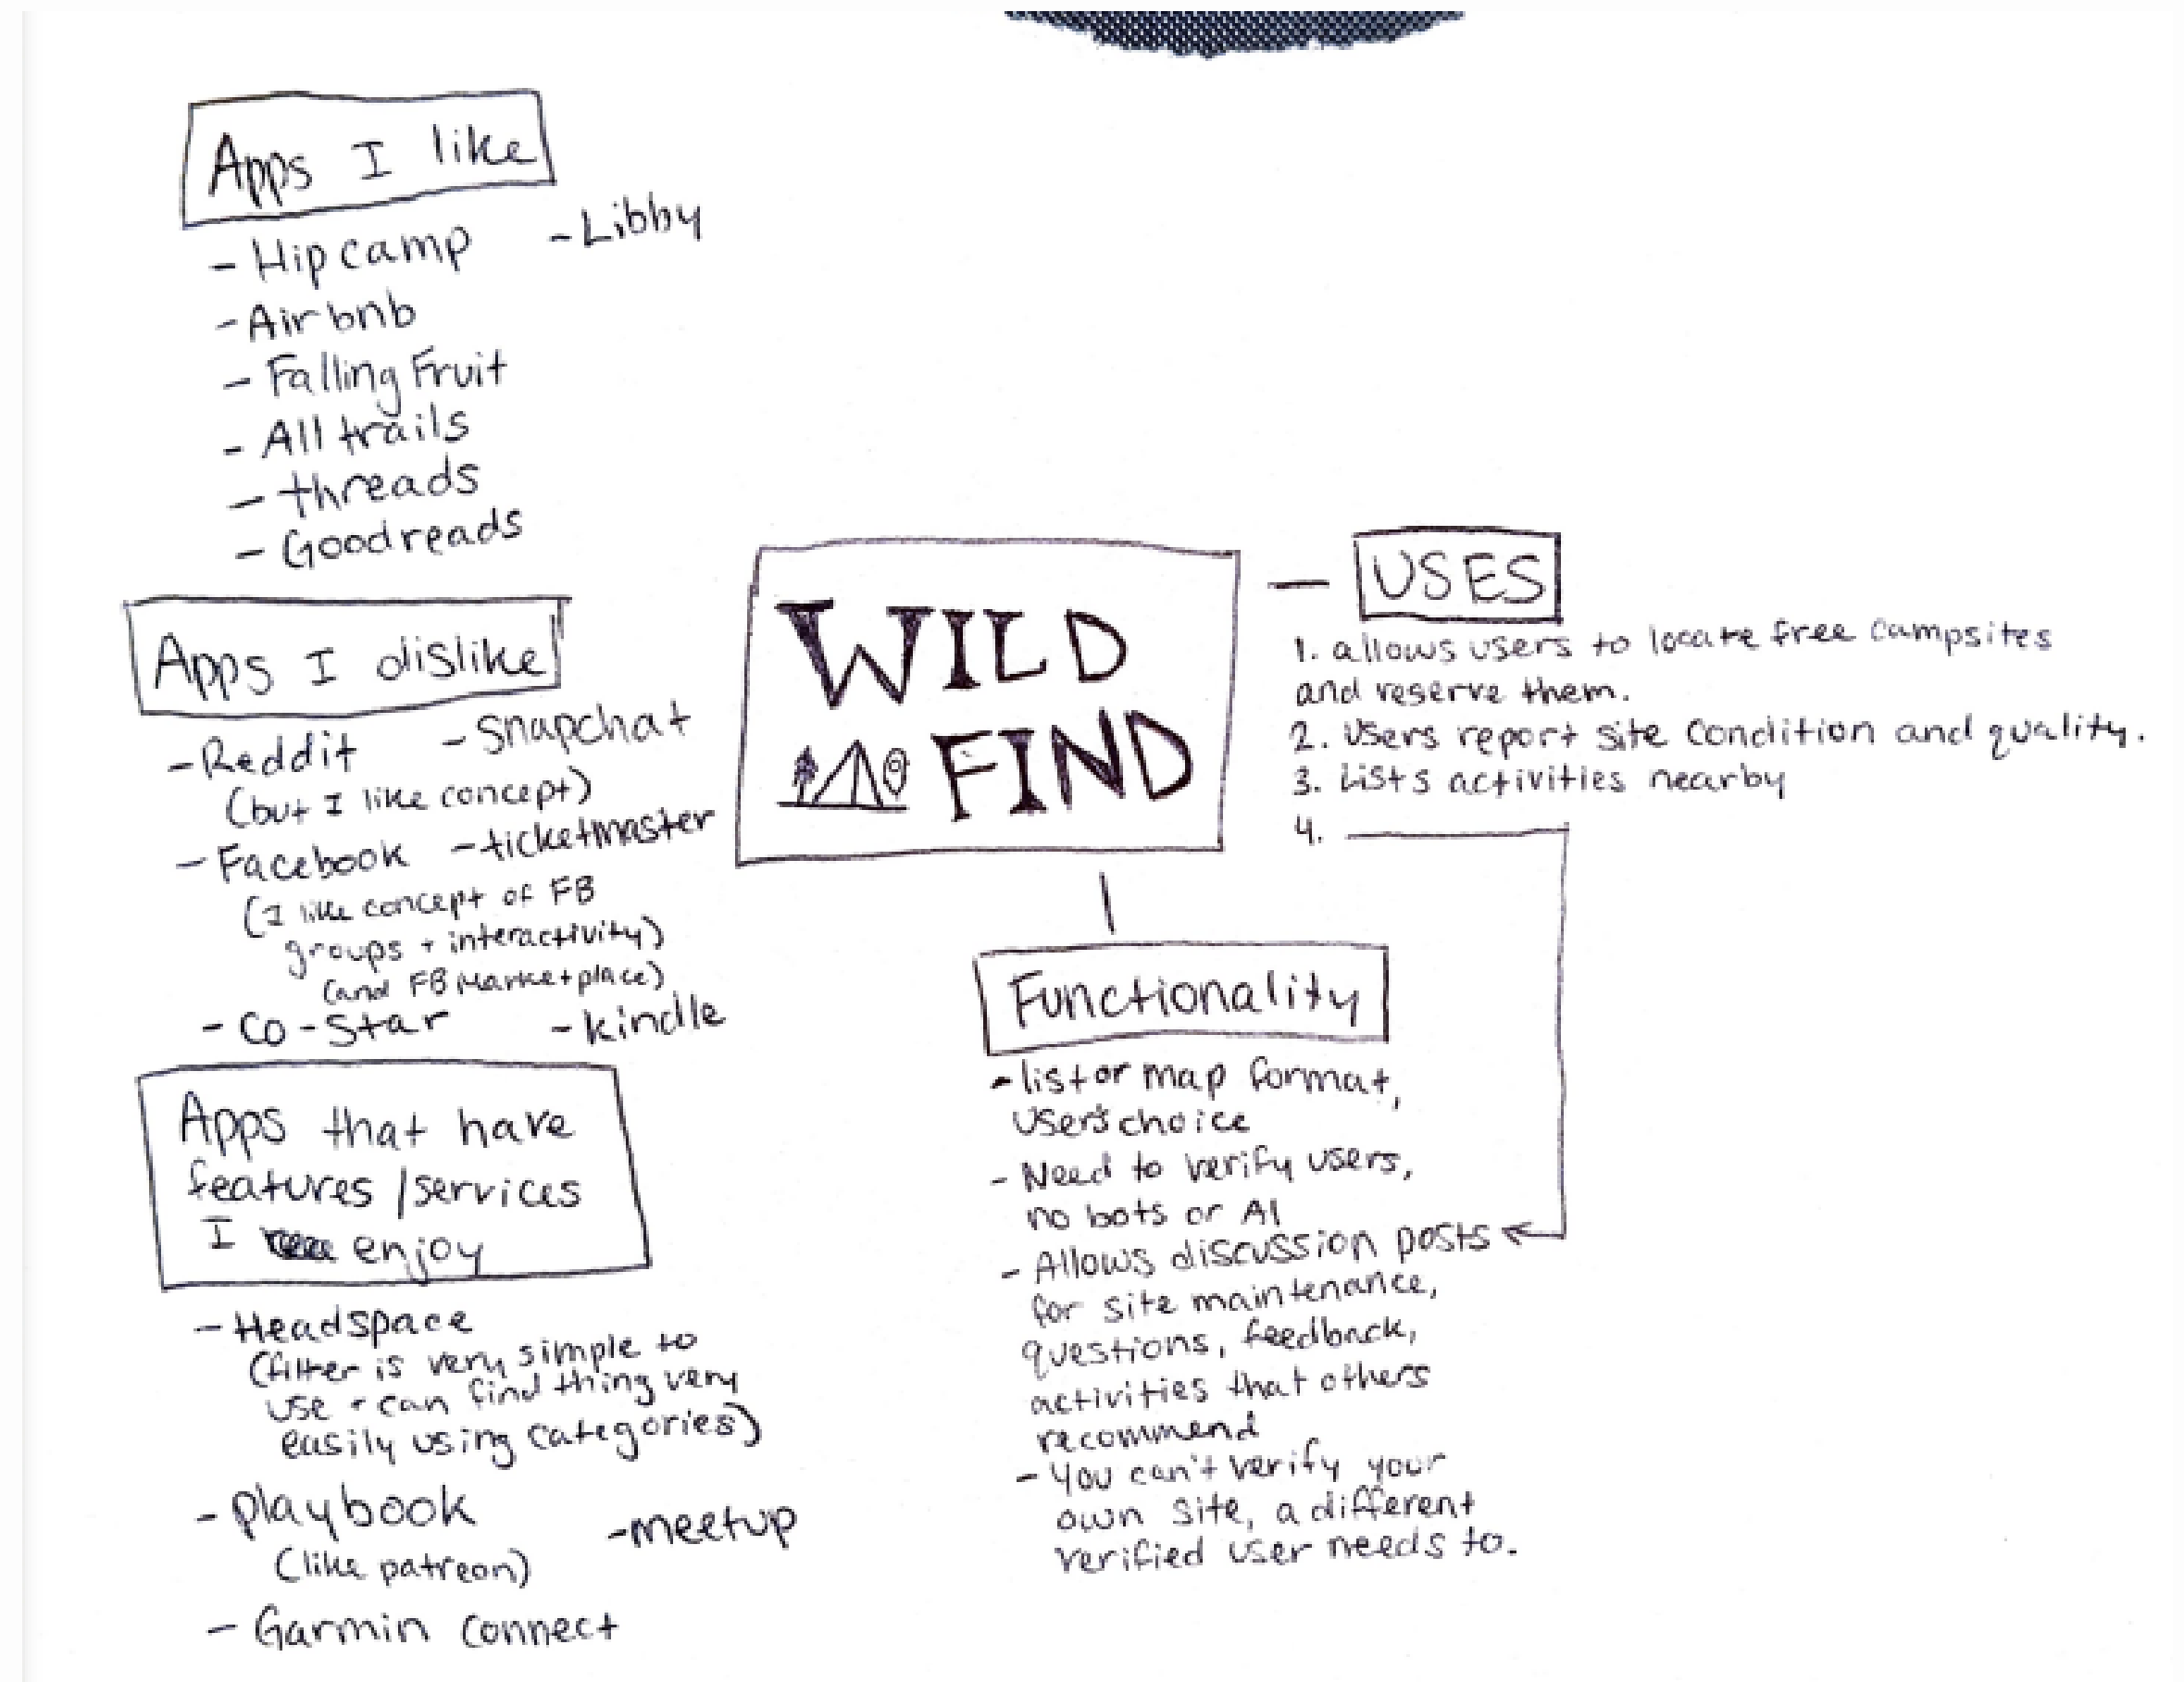 Apps I like
- Hipcamp
- Libby
- Airbnb
- Falling Fruit
- All trails
- threads
- Goodreads
Apps I dislike
- Reddit
- Snapchat
(but I like concept)
- Facebook
- ticketmaster
(I like concept of FB
groups + interactivity)
(and FB Marketplace)
- Co-Star
- kindle
Apps that have
features/services
I enjoy
- Headspace
(filter is very simple to
use + can find thing very
easily using categories)
- playbook
- meetup
(like patreon)
- Garmin connect
WILD
FIND
— USES
1. allows users to locate free campsites
and reserve them.
2. Users report site condition and quality.
3. Lists activities nearby
4.
Functionality
- list or map format,
user's choice
- Need to verify users,
no bots or AI
- Allows discussion posts
for site maintenance,
questions, feedback,
activities that others
recommend
- You can't verify your
own site, a different
verified user needs to.